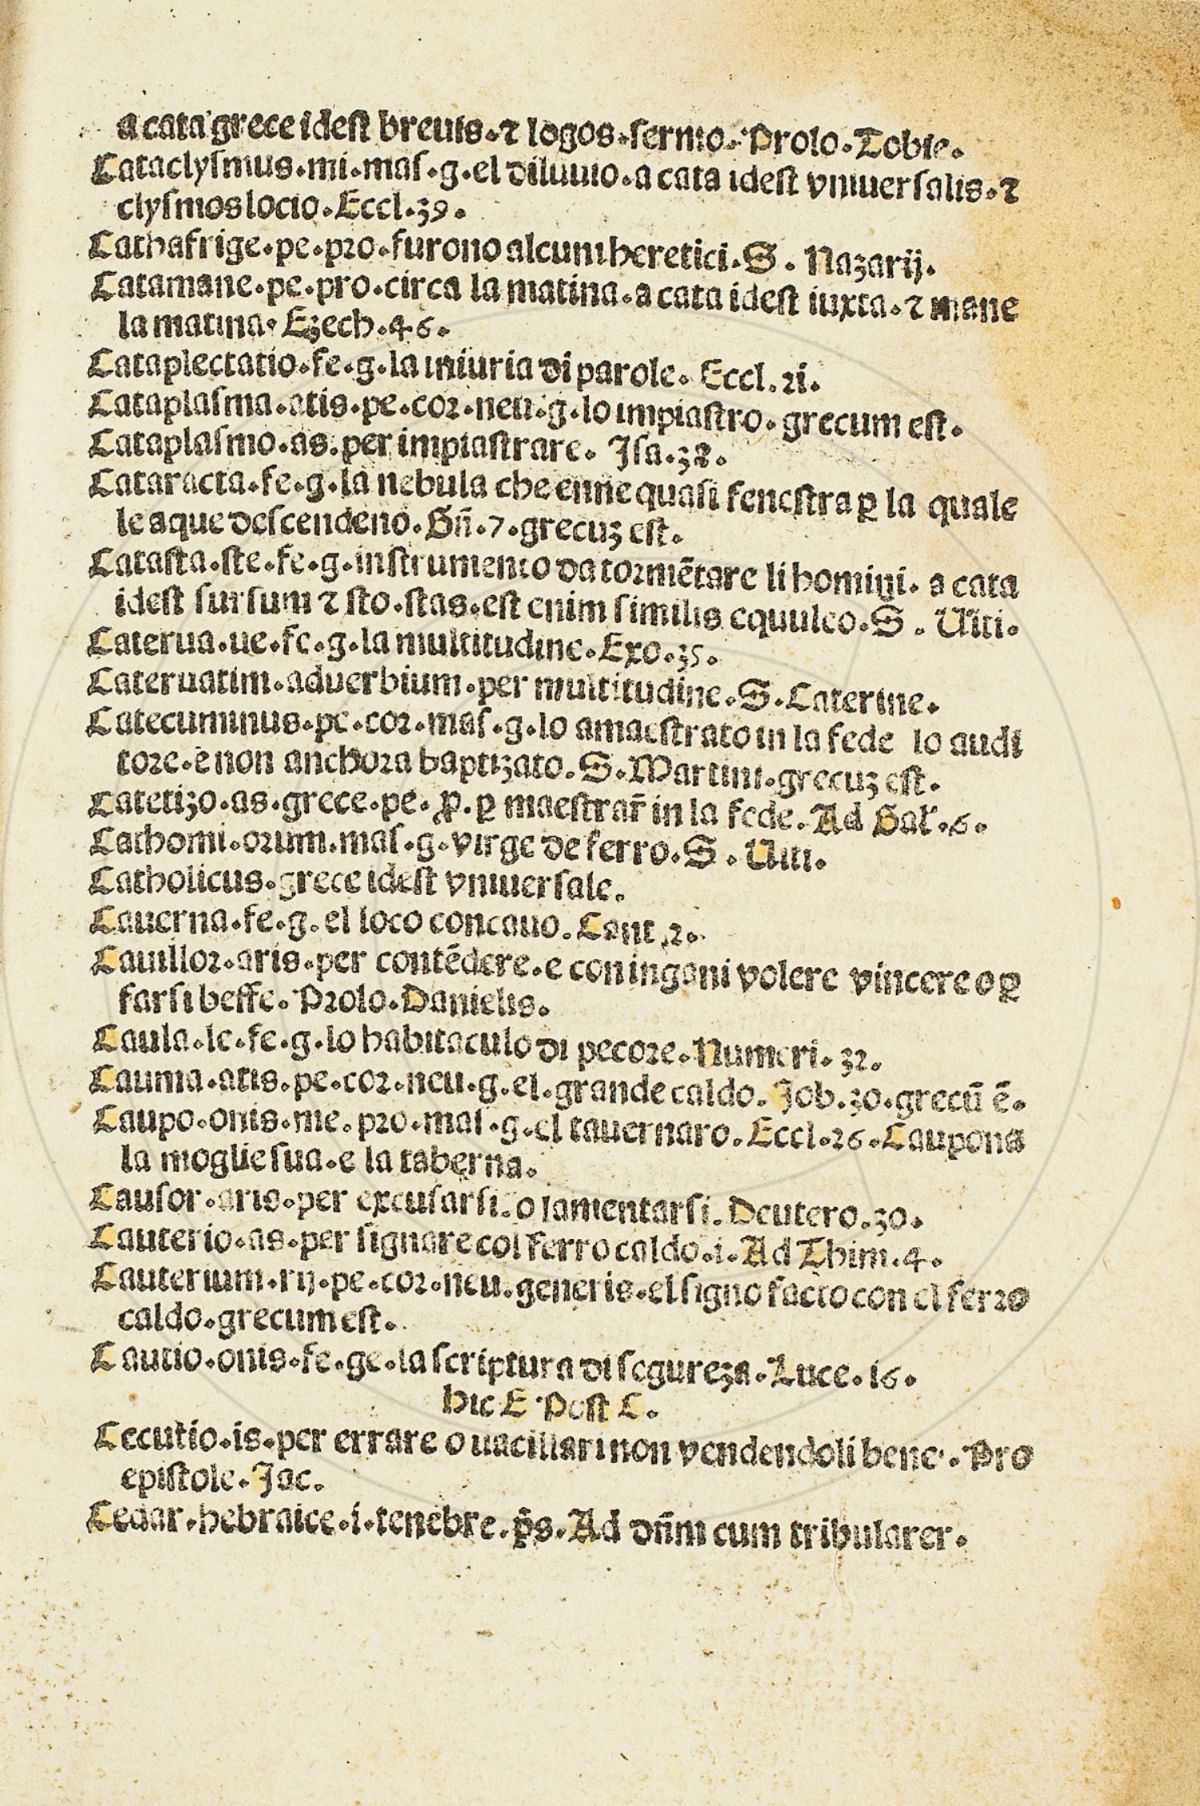 a cata grece idest breuis.⁊ logos.sermo.Prolo.Tobie.
Cataclysmus.mi.mas.g.el diluuio.a cata idest vniuersalis.⁊
clysmos locio.Eccl.39.
Cathafrige.pe.pro.furono alcuni heretici.S. Nazarij.
Catamane.pe.pro.circa la matina.a cata idest iuxta.⁊ mane
la matina.Ezech.46.
Cataplectatio.fe.g.la iniuria di parole. Eccl.21.
Cataplasma.atis.pe.cor.neu.g.lo impiastro.grecum est.
Cataplasmo.as.per impiastrare. Isa.38.
Cataracta.fe.g.la nebula che enne quasi fenestra ꝑ la quale
le aque descendeno.Gñ.7.grecuz est.
Catasta.ste.fe.g.instrumento da tormẽtare li homini. a cata
idest sursum ⁊ sto.stas.est enim similis equuleo.S. Uiti.
Caterua.ue.fe.g.la multitudine.Exo.35.
Cateruatim.aduerbium.per multitudine.S.Caterine.
Catecuminus.pe.cor.mas.g.lo amaestrato in la fede lo audi
tore.e non anchora baptizato.S.Martini.grecuz est.
Catetizo.as.grece.pe.ꝓ.ꝑ maestrar̃ in la fede.Ad Gal'.6.
Cathomi.orum.mas.g.virge de ferro.S. Uiti.
Catholicus.grece idest vniuersale.
Cauerna.fe.g.el loco concauo.Cant.2.
Cauillor.aris.per contẽdere.e con ingani volere vincere o ꝑ
farsi beffe.Prolo.Danielis.
Caula.le.fe.g.lo habitaculo di pecore.Numeri.32.
Cauma.atis.pe.cor.neu.g.el.grande caldo.Job.30.grecũ ẽ.
Caupo.onis.me.pro.mas.g.el tauernaro.Eccl.26.Caupona
la moglie sua.e la taberna.
Causor.aris.per excusarsi.o lamentarsi.Deutero.30.
Cauterio.as.per signare col ferro caldo.i.Ad Thim.4.
Cauterium.rij.pe.cor.neu.generis.el signo facto con el ferro
caldo.grecum est.
Cautio.onis.fe.ge.la scriptura di segureza.Luce.16.
hic E Post C.
Cecutio.is.per errare o uacillari non vendendoli bene.Pro
epistole.Jac.
Cedar.hebraice.i.tenebre.p̃s.Ad dñm cum tribularer.